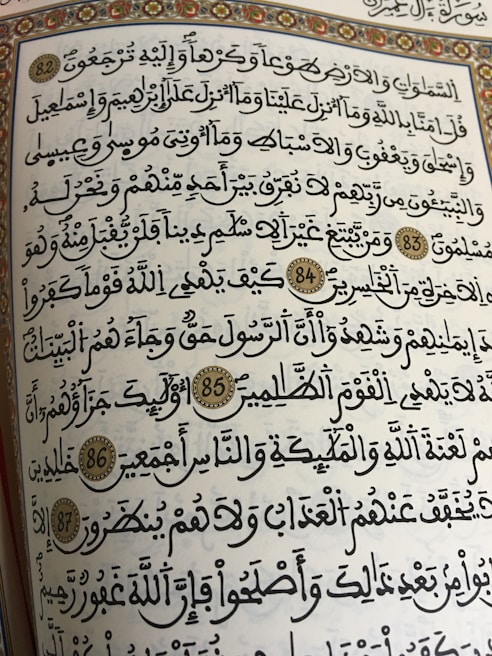 سُورَةُ ءَالِ عِمْرَانَ
اِ۬لسَّمَٰوَٰتِ وَالَارْضِ طَوْعاً وَكَرْهاً وَإِلَيْهِ تُرْجَعُونَ 82
قُلَ اٰمَنَّا بِاللَّهِ وَمَآ أُنزِلَ عَلَيْنَا وَمَآ أُنزِلَ عَلَىٰٓ إِبْرَٰهِيمَ وَإِسْمَٰعِيلَ
وَإِسْحَٰقَ وَيَعْقُوبَ وَالَاسْبَاطِ وَمَآ أُوتِيَ مُوسَىٰ وَعِيسَىٰ
وَالنَّبِيٓـُٔونَ مِن رَّبِّهِمْ لَا نُفَرِّقُ بَيْنَ أَحَدٍ مِّنْهُمْ وَنَحْنُ لَهُۥ
مُسْلِمُونَ 83 وَمَنْ يَّبْتَغِ غَيْرَ اَ۬لِاسْلَٰمِ دِيناً فَلَنْ يُّقْبَلَ مِنْهُ وَهُوَ
اِ۬لَاخِرَةِ مِنَ اَ۬لْخَٰسِرِينَ 84 كَيْفَ يَهْدِي اِ۬للَّهُ قَوْماً كَفَرُواْ
إِيمَٰنِهِمْ وَشَهِدُوٓاْ أَنَّ اَ۬لرَّسُولَ حَقٌّ وَجَآءَهُمُ اُ۬لْبَيِّنَٰتُ
لَا يَهْدِي اِ۬لْقَوْمَ اَ۬لظَّٰلِمِينَ 85 أُوْلَٰٓئِكَ جَزَآؤُهُمُۥٓ أَنَّ
لَعْنَةَ اَ۬للَّهِ وَالْمَلَٰٓئِكَةِ وَالنَّاسِ أَجْمَعِينَ 86 خَٰلِدِينَ
لَا يُخَفَّفُ عَنْهُمُ اُ۬لْعَذَابُ وَلَا هُمْ يُنظَرُونَ 87 إِلَّا
مِنۢ بَعْدِ ذَٰلِكَ وَأَصْلَحُواْ فَإِنَّ اَ۬للَّهَ غَفُورٌ رَّحِيمٌ